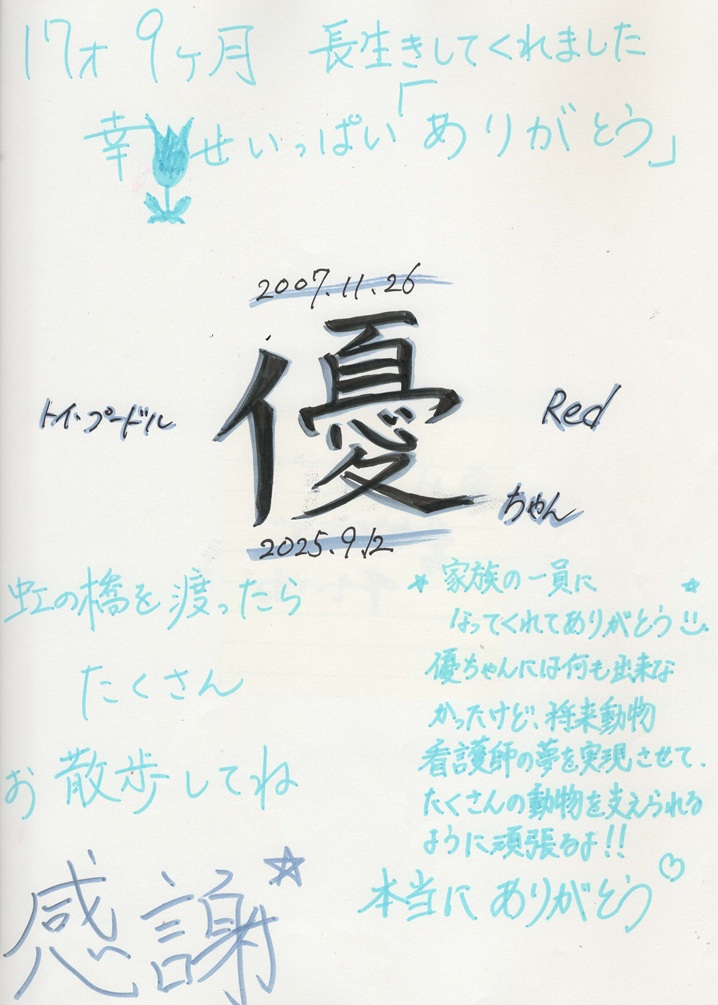 17才9ヶ月 長生きしてくれました
幸せいっぱい「ありがとう」
2007.11.26
優
トイ・プードル
Red
ちゃん
2025.9.12
虹の橋を渡ったら
たくさん
お散歩してね
感謝☆
★ 家族の一員に ☆
なってくれてありがとう
優ちゃんには何も出来な
かったけど、将来動物
看護師の夢を実現させて、
たくさんの動物を支えられる
ように頑張るよ!!
本当にありがとう♡